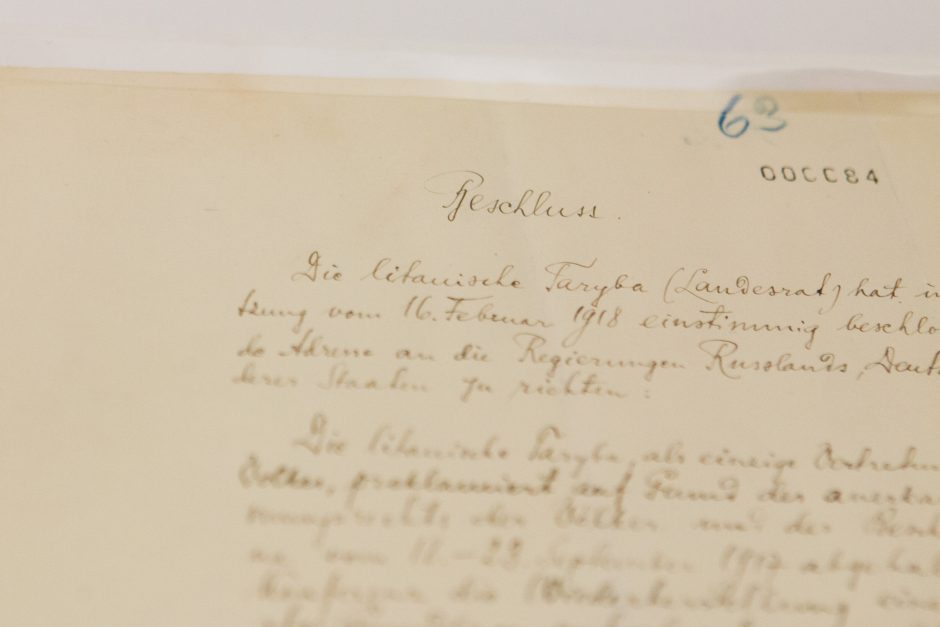 63
000084
Beschluss.
Die litauische Taryba (Landesrat) hat in
tzung vom 16. Februar 1918 einstimmig beschlo
de Adresse an die Regierungen Russlands, Deuts
derer Staaten zu richten:
Die litauische Taryba, als einzige Vertretun
Volkes, proklamiert auf Grund der anerka
nungsrechts der Völker und der Besch
na vom 18.–23. September 1917 abgehal
Konferenz die